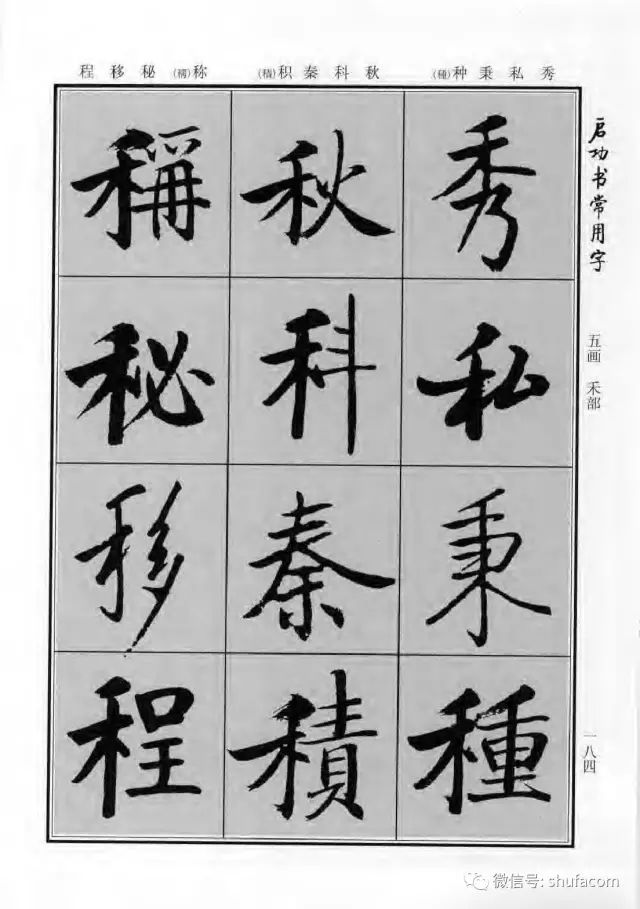 程移秘(稱)称 (積)积秦科秋 (種)种秉私秀
启功书常用字
五画 禾部
一八四
秀
私
秉
種
秋
科
秦
積
稱
秘
移
程
微信号: shufacom